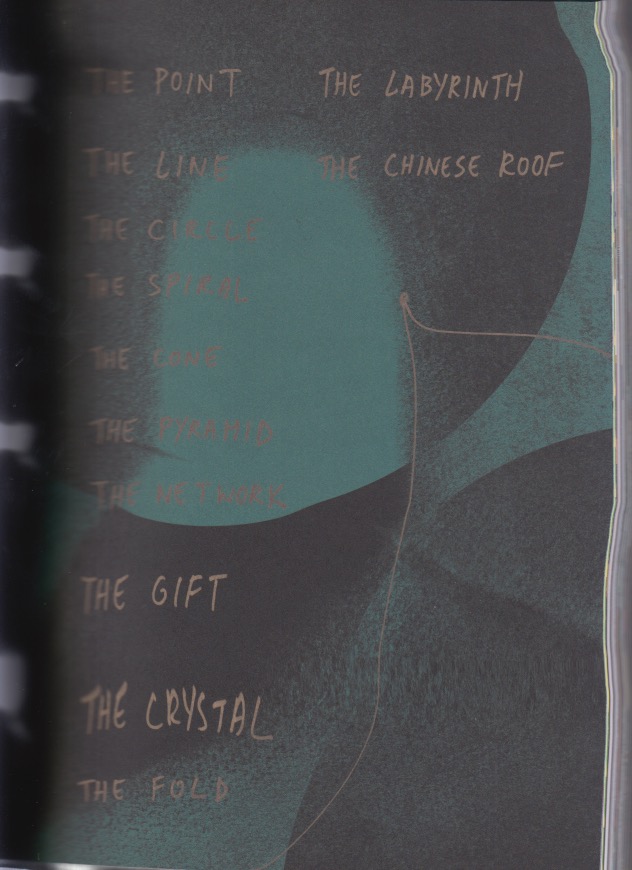 THE POINT
THE LINE
THE CIRCLE
THE SPIRAL
THE CONE
THE PYRAMID
THE NETWORK
THE GIFT
THE CRYSTAL
THE FOLD
THE LABYRINTH
THE CHINESE ROOF